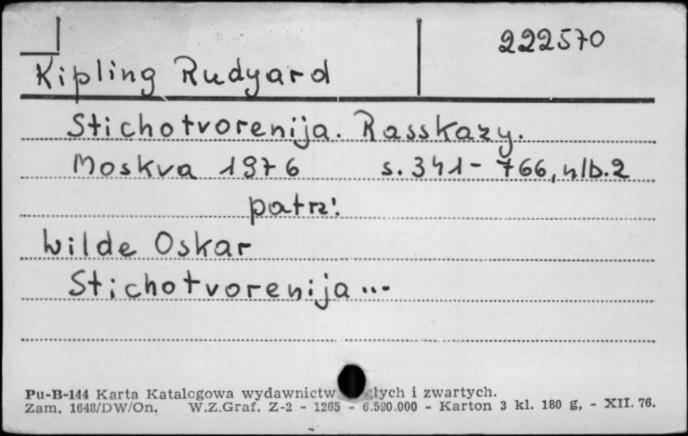 222570
Kipling Rudyard
Stichotvorenija. Rasskazy.
Moskva 1976 s. 341-766, nlb. 2
patrz:
Wilde Oskar
Stichotvorenija ...
Pu-B-144 Karta Katalogowa wydawnictw głych i zwartych.
Zam. 1648/DW/On. W.Z.Graf. Z-2 - 1265 - 6.590.000 - Karton 3 kl. 180 g, - XII. 76.